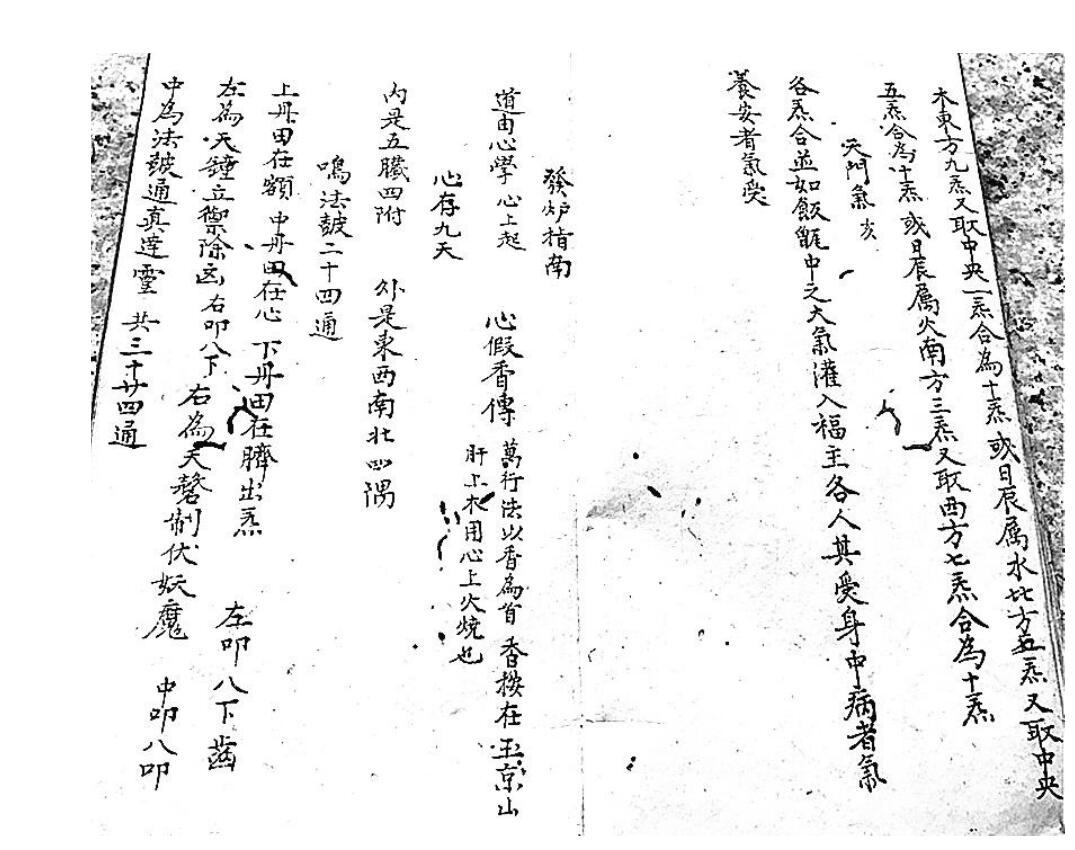 木東方九炁又取中央一炁合為十炁或日辰属水北方五炁又取中央
五炁合為十炁或日辰属火南方三炁又取西方七炁合為十炁
天門氣亥
各炁合並如飯甑中之大氣灌入福主各人其受身中病者氣
養安者氣受
發炉指南
道由心學 心上起 心假香傳 萬行法以香為首 香按在玉京山
心存九天 肝上木用心上火燒也
內是五臟四附 外是東西南北四隅
鳴法皷二十四通
上丹田在額 中丹田在心 下丹田在臍出炁 左叩八下齒
左為天鐘立禦除凶右叩八下 右為天磬制伏妖魔 中叩八叩
中為法皷通真達靈 共三十廿四通